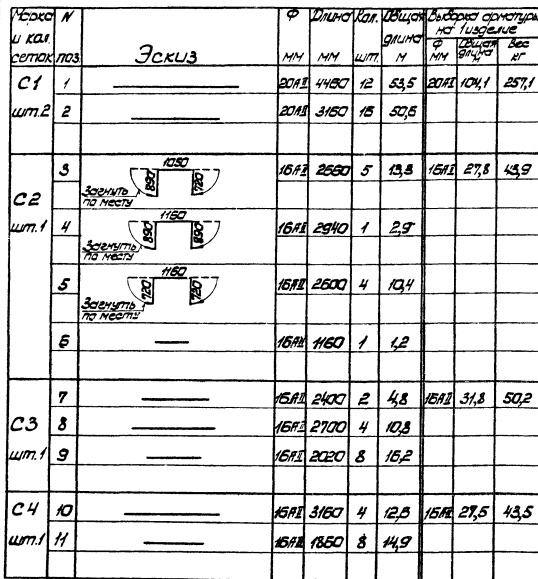 Марка и кол. сеток N поз. Эскиз Ф мм Длина мм Кол. шт. Общая длина м Выборка арматуры на 1 изделие Ф мм Общая длина м Вес кг
С1 шт.2 1 20АII 4460 12 53,5 20АII 104,1 257,1
2 20АII 3160 16 50,6
С2 шт.1 3 1050 890 720 Загнуть по месту 16АII 2660 5 13,3 16АII 27,8 43,9
4 1160 890 890 Загнуть по месту 16АII 2940 1 2,9
5 1160 720 720 Загнуть по месту 16АII 2600 4 10,4
6 16АII 1160 1 1,2
С3 шт.1 7 16АII 2400 2 4,8 16АII 31,8 50,2
8 16АII 2700 4 10,8
9 16АII 2020 8 16,2
С4 шт.1 10 16АII 3160 4 12,6 16АII 27,5 43,5
11 16АII 1860 8 14,9